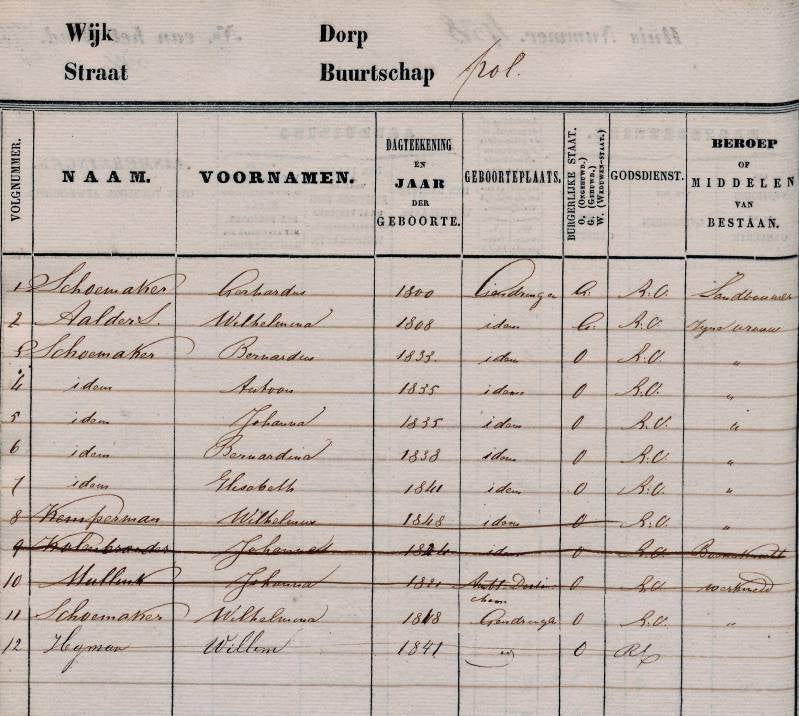 Wijk Dorp
Straat Buurtschap pol.
VOLGNUMMER. NAAM. VOORNAMEN. DAGTEEKENING EN JAAR DER GEBOORTE. GEBOORTEPLAATS. BURGERLIJKE STAAT. O. (Ongehuwd.) G. (Gehuwd.) W. (Weduwen-staat.) GODSDIENST. BEROEP OF MIDDELEN VAN BESTAAN.
1 Schoemaker Gerhardus 1800 Gendringen G. R.C. Landbouwer
2 Aalders. Wilhelmina 1808 idem G. R.C. Zyne vrouw
3 Schoemaker Bernardus 1833 idem O R.C. "
4 idem Antoon 1835 idem O R.C. "
5 idem Johanna 1835 idem O R.C. "
6 idem Bernardina 1838 idem O R.C. "
7 idem Elisabeth 1841 idem O R.C. "
8 Kemperman Wilhelmus 1848 idem O R.C. "
9 Kolenbrander Johannes 1824 idem O R.C.
10 Mullink Johanna O R.C. werkmeid
11 Schoemaker Wilhelmina 1848 Gendringen O R.C. "
12 Heyman Willem 1841 O